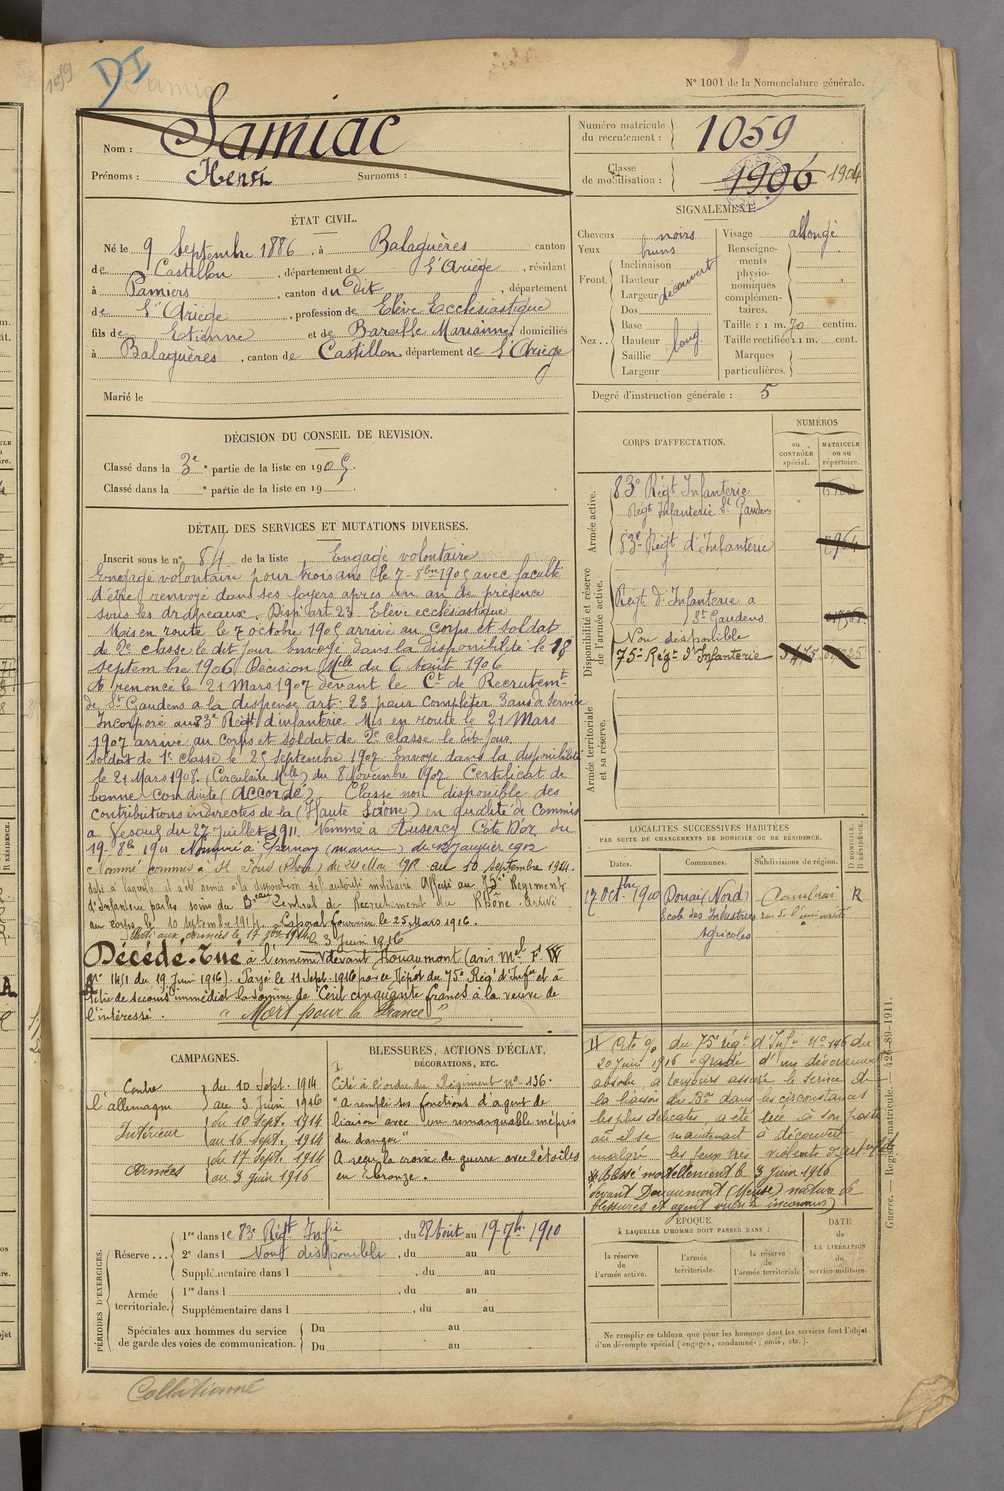 DI
N° 1001 de la Nomenclature générale.
Nom : Samiac
Prénoms : Henri Surnoms :
Numéro matricule du recrutement : 1059
Classe de mobilisation : 1906 1904
ÉTAT CIVIL.
Né le 9 Septembre 1886, à Balaguères canton
de Castillon, département de l'Ariège, résidant
à Pamiers, canton du dit, département
de l'Ariège, profession de Elève Ecclésiastique
fils de Etienne et de Baralle Marianne, domiciliés
à Balaguères, canton de Castillon, département de l'Ariège
Marié le
SIGNALEMENT.
Cheveux noirs
Yeux bruns
Front. Inclinaison
Hauteur
Largeur découvert
Nez.. Dos
Base
Hauteur long
Saillie
Largeur
Visage allongé
Renseignements physionomiques complémentaires.
Taille : 1 m. 70 centim.
Taille rectifiée : 1 m. cent.
Marques particulières.
Degré d'instruction générale : 5
DÉCISION DU CONSEIL DE REVISION.
Classé dans la 3e partie de la liste en 1905.
Classé dans la e partie de la liste en 19 .
DÉTAIL DES SERVICES ET MUTATIONS DIVERSES.
Inscrit sous le n° 84 de la liste Engagé volontaire
Engagé volontaire pour trois ans le 7 8bre 1905 avec faculté
d'être renvoyé dans ses foyers après un an de présence
sous les drapeaux. Disp. art 23 Elève ecclésiastique
Mis en route le 7 octobre 1905 arrivé au corps et soldat
de 2e classe le dit jour. Envoyé dans la disponibilité le 18
septembre 1906 (Décision Mlle du 6 août 1906
A renoncé le 21 Mars 1907 devant le Ct de Recrutemt
de St Gaudens à la dispense art : 23 pour compléter 3 ans de Service
Incorporé au 83e Régt d'infanterie Mis en route le 21 Mars
1907 arrivé au corps et soldat de 2e classe le dit jour.
Soldat de 1e classe le 25 septembre 1907 Envoyé dans la disponibilité
le 21 Mars 1908. (Circulaire Mlle) du 8 Novembre 1907 Certificat de
bonne conduite (Accordé). Classé non disponible des
contributions indirectes de la (Haute Saône) en qualité de Commis
à Vesoul du 27 Juillet 1911. Nommé à Côte D'or du
19 8bre 1911 Nommé à Epernay (marne) du Janvier 1912
Nommé commis à St Fons (Rhône) du 24 Mai au 10 septembre 1914.
date à laquelle il a été remis à la disposition de l'autorité militaire Affecté au 75e Régiment
d'Infanterie par les soins du Beau Central de Recrutement du Rhône. Arrivé
au corps le 10 septembre 1914. Caporal fourrier le 25 Mars 1916.
Parti aux armées le 17 7bre 1914
le 3 Juin 1916
Décédé. Tué à l'ennemi devant Douaumont (avis Mel F. W
N° 1451 du 19 Juin 1916). Payé le 11 Sept. 1916 par le Dépôt du 75e Rég. d'Infie et à
titre de secours immédiat la somme de Cent cinquante francs à la veuve de
l'intéressé. "Mort pour la France"
CORPS D'AFFECTATION.
NUMÉROS
au CONTRÔLE spécial.
MATRICULE ou au répertoire.
Armée active.
83e Régt Infanterie
Régt Infanterie St Gaudens
83e Régt d'Infanterie
Disponibilité et réserve de l'armée active.
Régt d'Infanterie à
St Gaudens
Non disponible
75e Régt d'Infanterie
Armée territoriale et sa réserve.
LOCALITÉS SUCCESSIVES HABITÉES
PAR SUITE DE CHANGEMENTS DE DOMICILE OU DE RÉSIDENCE.
Dates. Communes. Subdivisions de région. D DOMICILE. R RÉSIDENCE.
17 Octbre 1910 Douai (Nord) Cambrai R
Ecole des Industries rue de l'université
Agricoles
CAMPAGNES.
Contre l'allemagne
du 10 Sept. 1914
au 3 Juin 1916
Intérieur
du 10 Sept. 1914
au 16 Sept. 1914
Armées
du 17 Sept. 1914
au 3 Juin 1916
BLESSURES, ACTIONS D'ÉCLAT,
DÉCORATIONS, ETC.
I
Cité à l'ordre du Régiment n° 136.
"A rempli ses fonctions d'agent de
liaison avec un remarquable mépris
du danger"
A reçu la croix de guerre avec 2 étoiles
en bronze.
II Cité o/o du 75 rég. d'Infie n° 146 du
20 Juin 1916 "Gradé d'un dévouement
absolu, a toujours assuré le service de
la liaison du Bon dans les circonstances
les plus délicates a été tué à son poste
où il se maintenait à découvert
malgré les feux très violents d'artillerie
Blessé mortellement le 3 Juin 1916
devant Douaumont (Meuse) nature de
blessures et agent inconnus)
PÉRIODES D'EXERCICES.
Réserve... 1re dans le 83e Régt Infie, du 28 Août au 19 7bre 1910
2e dans l Non disponible, du au
Supplémentaire dans l , du au
Armée territoriale. 1re dans l , du au
Supplémentaire dans l , du au
Spéciales aux hommes du service de garde des voies de communication. Du au
Du au
ÉPOQUE
À LAQUELLE L'HOMME DOIT PASSER DANS :
la réserve de l'armée active.
l'armée territoriale.
la réserve de l'armée territoriale.
DATE de LA LIBÉRATION du service militaire.
Ne remplir ce tableau que pour les hommes dont les services font l'objet
d'un décompte spécial (engagés, condamnés, omis, etc.).
Guerre. — Registre matricule. — 426-89-1911.
Collationné